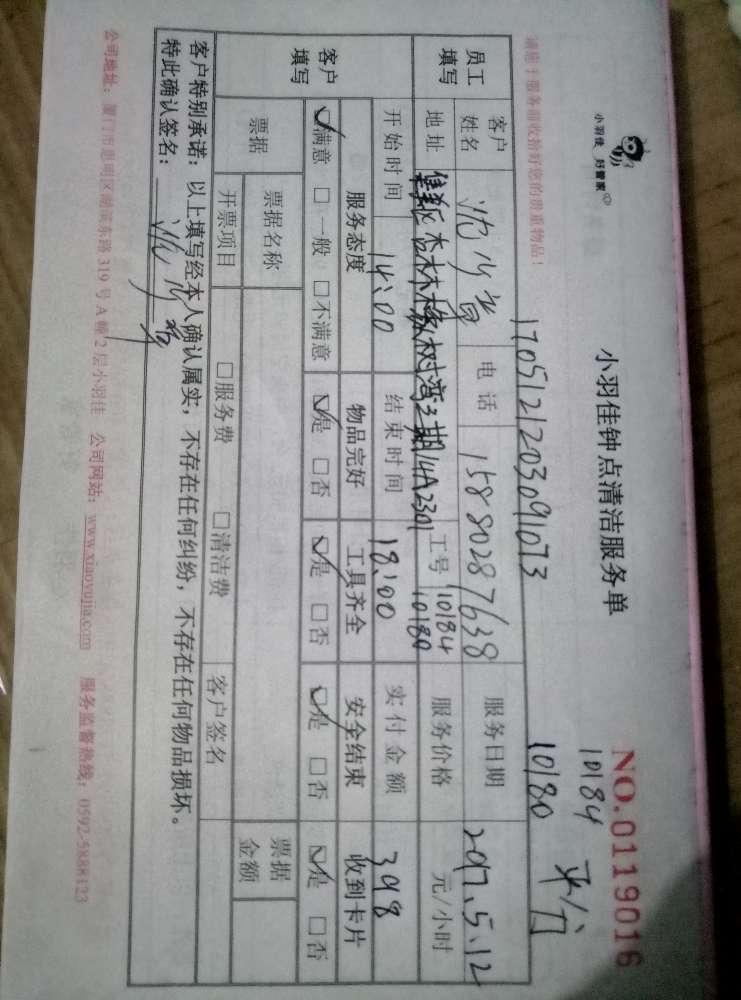 小羽佳 好管家
小羽佳钟点清洁服务单
NO.0119016
10184 平分
10180
1705121203091073
请您于服务前收拾好您的贵重物品！
员工填写
客户姓名 沈少香 电话 15880287638 服务日期 2017.5.12
地址 集美区杏林 橡树湾二期14A2301 工号 10184 10180 服务价格 元/小时
开始时间 14:00 结束时间 18:00 实付金额 398
客户填写
服务态度 物品完好 工具齐全 安全结束 收到卡片
☑满意 □一般 □不满意 ☑是 □否 ☑是 □否 ☑是 □否 ☑是 □否
票据 票据名称 票据金额
开票项目 □服务费 □清洁费 客户签名
客户特别承诺：以上填写经本人确认属实，不存在任何纠纷，不存在任何物品损坏。
特此确认签名：沈少香
公司地址：厦门市思明区湖滨东路319号A幢2层小羽佳 公司网站：www.xiaoyujia.com 服务监督热线：0592-5888123